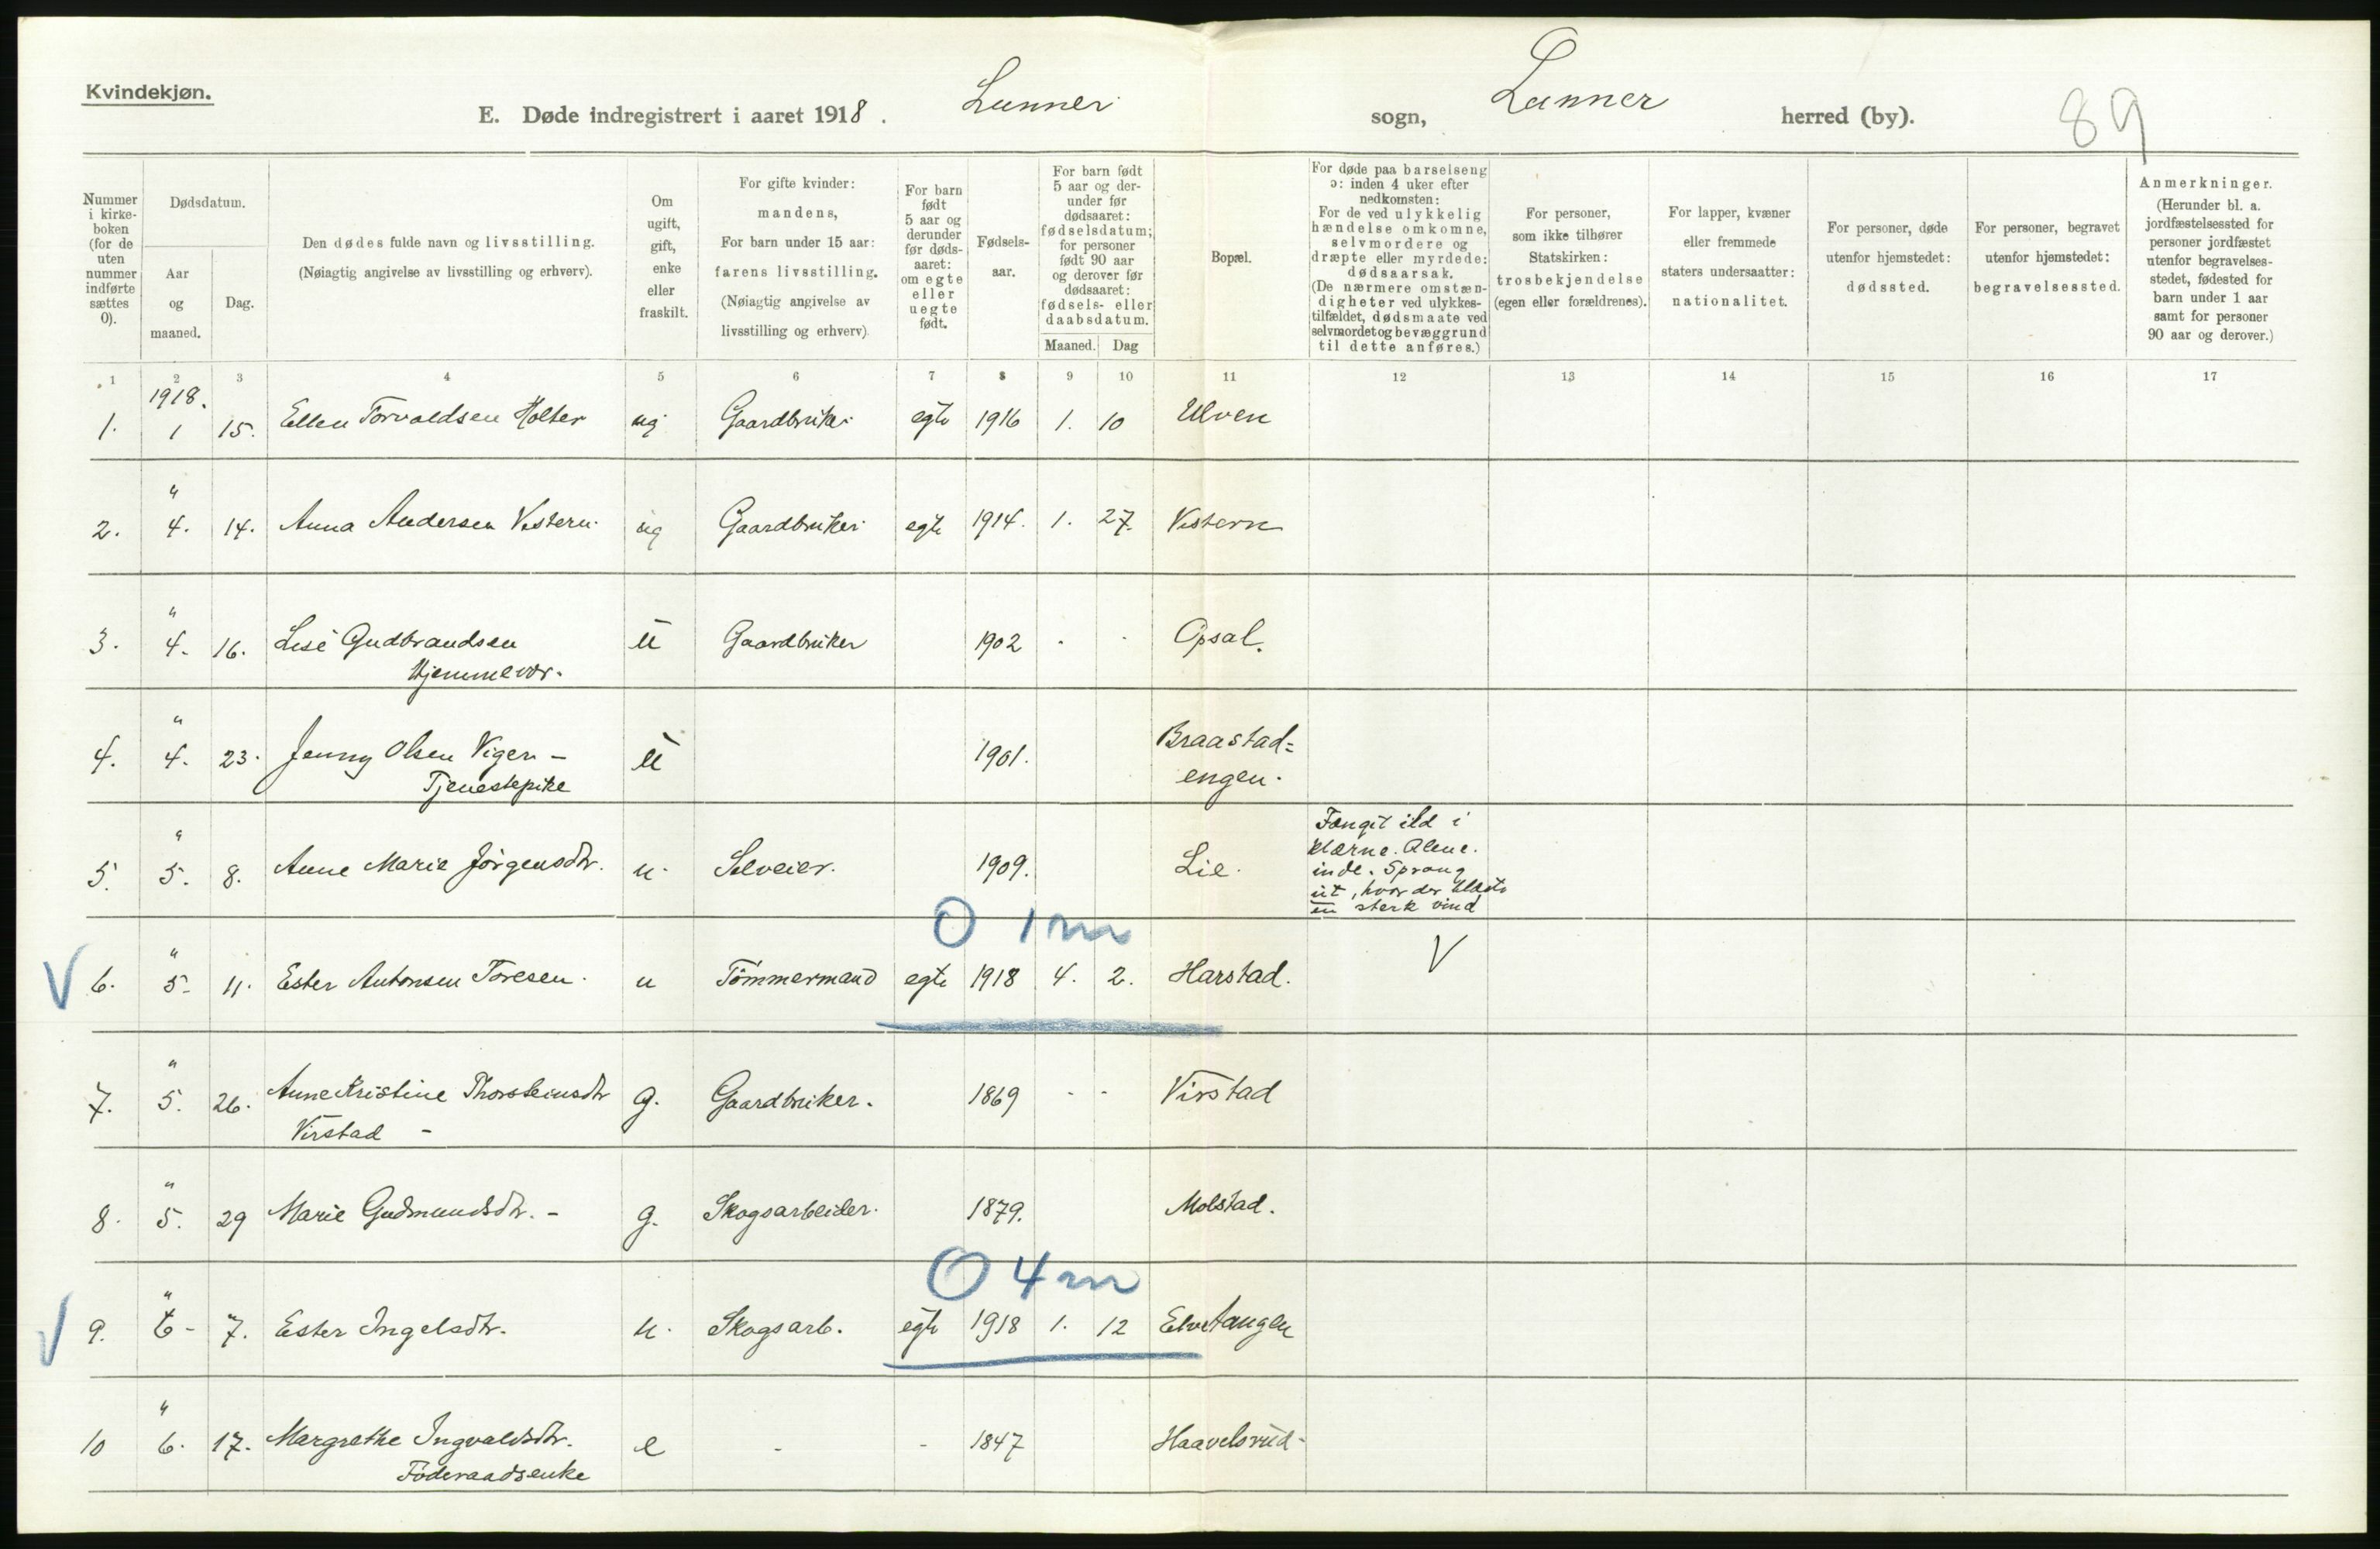 Kvindekjøn.
E. Døde indregistrert i aaret 1918. Lunner sogn, Lunner herred (by). 89
Nummer i kirke-boken (for de uten nummer indførte sættes 0).
Dødsdatum.
Aar og maaned.
Dag.
Den dødes fulde navn og livsstilling.
(Nøiagtig angivelse av livsstilling og erhverv).
Om ugift, gift, enke eller fraskilt.
For gifte kvinder: mandens,
For barn under 15 aar: farens livsstilling.
(Nøiagtig angivelse av livsstilling og erhverv)
For barn født 5 aar og derunder før døds-aaret: om egte eller uegte født.
Fødsels-aar.
For barn født 5 aar og der-under før dødsaaret: fødselsdatum; for personer født 90 aar og derover før dødsaaret: fødsels- eller daabsdatum.
Maaned. Dag
Bopæl.
For døde paa barselseng ɔ: inden 4 uker efter nedkomsten:
For de ved ulykkelig hændelse omkomne, selvmordere og dræpte eller myrdede: dødsaarsak.
(De nærmere omstæn-digheter ved ulykkes-tilfældet, dødsmaate ved selvmordet og bevæggrund til dette anføres.)
For personer, som ikke tilhører Statskirken: trosbekjendelse (egen eller forældrenes).
For lapper, kvæner eller fremmede staters undersaatter: nationalitet.
For personer, døde utenfor hjemstedet: dødssted.
For personer, begravet utenfor hjemstedet: begravelsessted.
Anmerkninger.
(Herunder bl. a. jordfæstelsessted for personer jordfæstet utenfor begravelses-stedet, fødested for barn under 1 aar samt for personer 90 aar og derover.)
1 2 3 4 5 6 7 8 9 10 11 12 13 14 15 16 17
1918.
1. 1 15. Ellen Torvaldsen Holter ug Gaardbruker egte 1916 1. 10 Ulven
"
2. 4. 14. Anna Andersen Vestern. ug Gaardbruker egte 1914. 1. 27. Vestern
"
3. 4. 16. Lise Gudbrandsen u Gaardbruker 1902 - - Opsal.
Hjemmevær.
"
4. 4. 23. Jenny Olsen Vigen - u 1901. Braastad=
Tjenestepike engen.
"
5. 5. 8. Anne Marie Jörgensdtr. u. Selveier. 1909. Lie.
Fanget ild i
klærne. Alene.
inde. Sprang
ut, hvor der blæste
en sterk vind
O 1 m
"
V 6. 5- 11. Ester Antonsen Toresen. u Tömmermand egte 1918 4. 2. Harstad. V
"
7. 5. 26. Anne Kristine Thorsteinsdtr g. Gaardbruker. 1869 - - Virstad
Virstad -
"
8. 5. 29 Marie Gudmundsdtr. - g. Skogsarbeider. 1879. Molstad.
O 4 m
"
V 9. 6- 7. Ester Ingelsdtr. u. Skogsarb. egte 1918 1. 12 Elvetangen
"
10 6. 17. Margrethe Ingvaldsdtr. e - - 1847 Haavelsrud-
Föderaadsenke